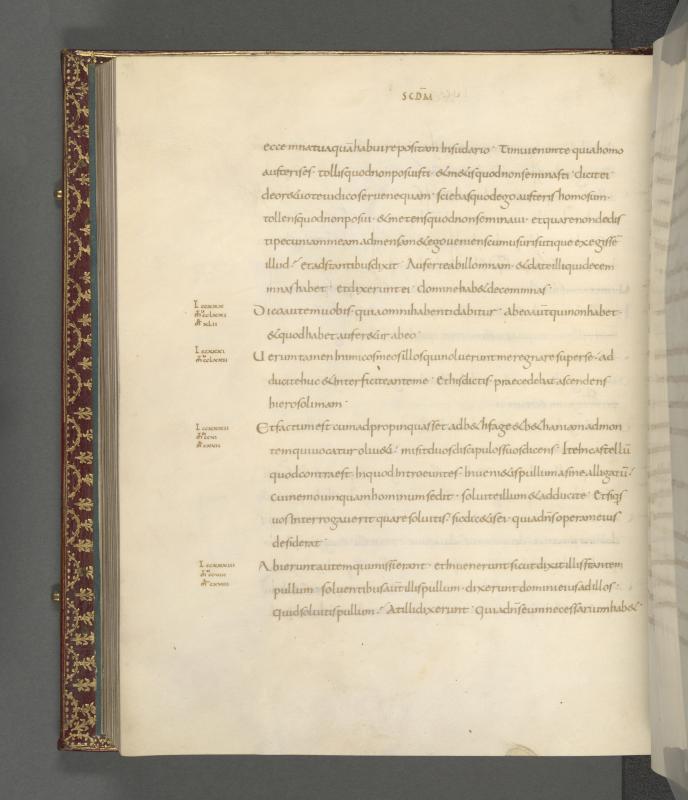 SCDM
ecce mna tua quā habui reposítam Insudario · Timui enim te quia homo
austerises · tollis quod nonposuisti · &m&is quod nonseminasti · dicit ei
deore&uo te iudico serue nequam · sciebas quod ego austeris homo sum ·
tollens quod non posui · &metens quod nonseminaui · et quare non dedis
ti pecuniam meam admensam &ego ueniens cum usuris utique exegissē
illud · et adstantibus dixit · Auferte abillo mnam · &date illi qui decem
mnas habet · Et dixerunt ei · domine hab& decem mnas
Dico autem uobis · quia omni habenti dabitur · abeo aūt qui non habet ·
&quod habet aufer&ur abeo ·
Uerumtamen Inimicos meos illos quinoluerunt me regnare super se · ad
ducite huc &Interficite ante me · Ethis dictis · praecedebat ascendens
hierosolimam ·
Et factum est cum adpropinquasset ad b&hfage &b&haniam ad mon
tem qui uocatur oliu&i · misit duos discipulos suos dicens · Ite In castellū
quod contra est · Inquod Introeuntes · Inueni&is pullum asinę alligatū
cui nemo umquam hominum sedit · soluite illum &adducite · Et siq̄s
uos Interrogauerit quare soluitis · sic dic&is ei · quia dn̄s operam eius
desiderat ·
Abierunt autem qui missi erant · et Inuenerunt sicut dixit illis stantem
pullum · soluentibus aūt illis pullum · dixerunt domini eius ad illos ·
Quid soluitis pullum · At illi dixerunt · Quia dn̄s eum necessarium hab&